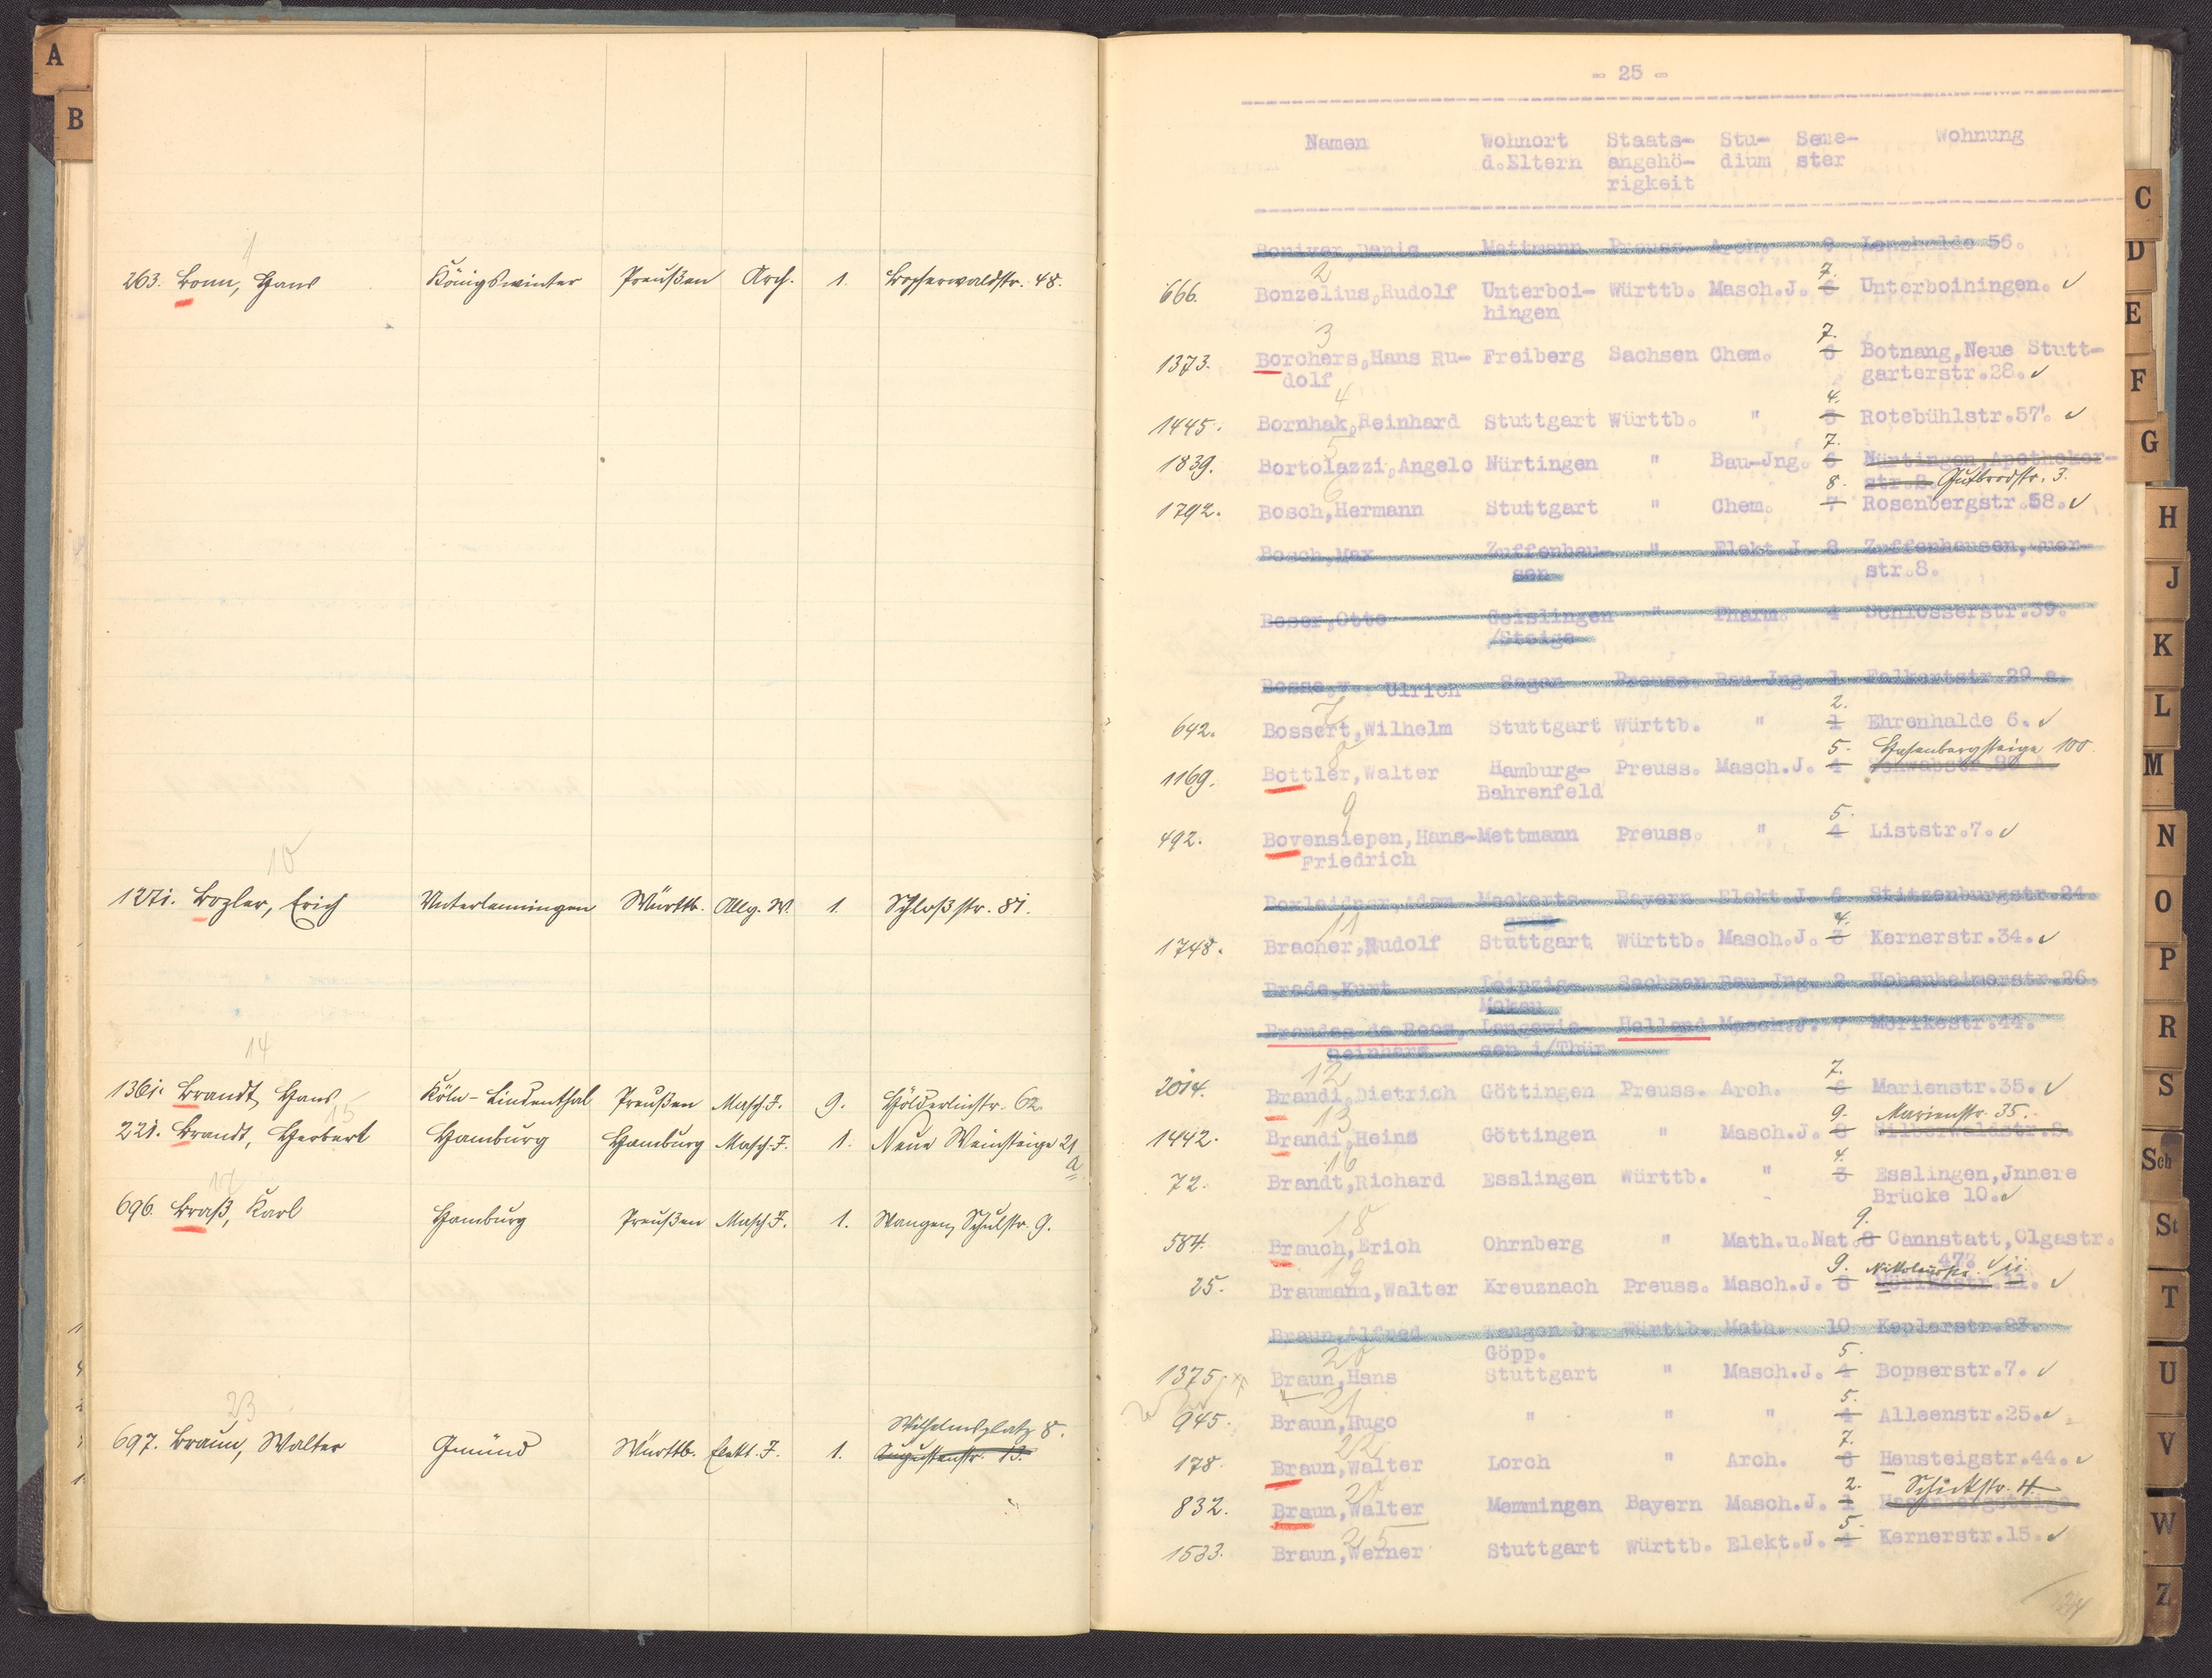 A
B
1
263. Bonn, Hans Königswinter Preußen Arch. 1. Bopserwaldstr. 48.
10
1271. Bozler, Erich Unterlenningen Württb. Allg. W. 1. Schloßstr. 81.
14
1361. Brandt, Hans Köln-Lindenthal Preußen Masch. J. 9. Hölderlinstr. 62.
15
221. Brandt, Herbert Hamburg Hamburg Masch. J. 1. Neue Weinsteige 21
a
17
696. Braß, Karl Hamburg Preußen Masch. J. 1. Wangen, Schulstr. 9.
23
Wilhelmsplatz 8.
697. Braun, Walter Gmünd Württb. Elekt. J. 1. Augustenstr. 13.
- 25 -
Namen Wohnort Staats- Stu- Seme- Wohnung
d.Eltern angehö- dium ster
rigkeit
Boniver,Denis Mettmann Preuss. Arch. 56.
2 7.
666. Bonzelius,Rudolf Unterboi- Württb. Masch.J. 6 Unterboihingen. ✓
hingen
3 7.
1373. Borchers,Hans Ru- Freiberg Sachsen Chem. 6 Botnang,Neue Stutt-
dolf garterstr.28. ✓
4 4.
1445. Bornhak,Reinhard Stuttgart Württb. " 3 Rotebühlstr.57. ✓
5 7.
1839. Bortolazzi,Angelo Nürtingen " Bau-Jng. 6 Nürtingen,Apotheker-
6 8. str.2. Gutbrodstr. 3.
1792. Bosch,Hermann Stuttgart " Chem. 7 Rosenbergstr.58. ✓
Bosch,Max Zuffenhau- " Elekt.J. 8 Zuffenhausen,Quer-
sen str.8.
Boser,Otto Geislingen " Pharm. 4 Schlosserstr.39.
/Steige
Bosse,v. Ulrich Sagan Preuss. Bau-Jng. 1 Falkertstr.29 a.
7 2.
642. Bossert,Wilhelm Stuttgart Württb. " 1 Ehrenhalde 6. ✓
8 5. Hasenbergsteige 100.
1169. Bottler,Walter Hamburg- Preuss. Masch.J. 4 Schwabstr.
Bahrenfeld
9 5.
492. Bovensiepen,Hans- Mettmann Preuss. " 4 Liststr.7. ✓
Friedrich
Boxleidner,Adam Mackerts- Bayern Elekt.J. 6 Stitzenburgstr.24.
grün
11 4.
1748. Bracher,Rudolf Stuttgart Württb. Masch.J. 3 Kernerstr.34. ✓
Brade,Kurt Leipzig- Sachsen Bau-Jng. 2 Hohenheimerstr.26.
Mokau
Brandes de Roos, Langewie- Holland Masch.J. 7 Mörikestr.44.
Reinhard sen i/Thür.
12 7.
2014. Brandi,Dietrich Göttingen Preuss. Arch. 6 Marienstr.35. ✓
13 9. Marienstr. 35.
1442. Brandi,Heinz Göttingen " Masch.J. 8 Silberwaldstr.8.
16 4.
72. Brandt,Richard Esslingen Württb. " 3 Esslingen,Jnnere
Brücke 10. ✓
18 9.
584. Brauch,Erich Ohrnberg " Math.u.Nat. 8 Cannstatt,Olgastr.
47. ✓
19 9. Nikolausstr. 11.
25. Braumann,Walter Kreuznach Preuss. Masch.J. 8 Mörikestr.11. ✓
Braun,Alfred Wangen b. Württb. Math. 10 Keplerstr.23.
Göpp.
20 5.
1375. Braun,Hans Stuttgart " Masch.J. 4 Bopserstr.7. ✓
21 5.
945. Braun,Hugo " " " 4 Alleenstr.25. ✓
22 7.
178. Braun,Walter Lorch " Arch. 6 Hausteigstr.44. ✓
24 2. Schickstr. 4.
832. Braun,Walter Memmingen Bayern Masch.J. 1 Hasenbergsteige
25 5.
1533. Braun,Werner Stuttgart Württb. Elekt.J. 4 Kernerstr.15. ✓
24
C
D
E
F
G
H
J
K
L
M
N
O
P
R
S
Sch
St
T
U
V
W
Z